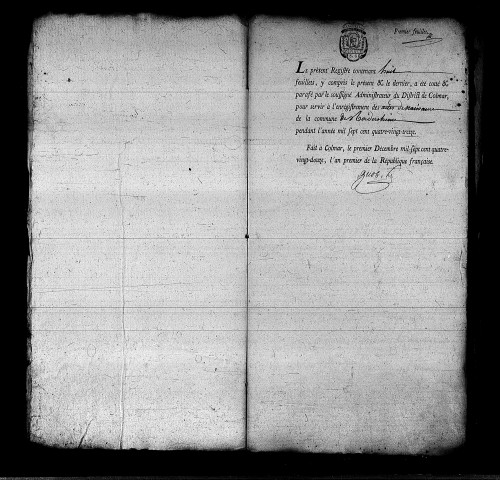 Premier feuillet
Le présent Registre contenant huit
feuillets, y compris le présent & le dernier, a été coté &
parafé par le soussigné Administrateur du District de Colmar,
pour servir à l'enregistrement des actes de naissance
de la commune de
pendant l'année mil sept cent quatre-vingt-treize.
Fait à Colmar, le premier Décembre mil sept cent quatre-
vingt-douze, l'an premier de la République françaife.